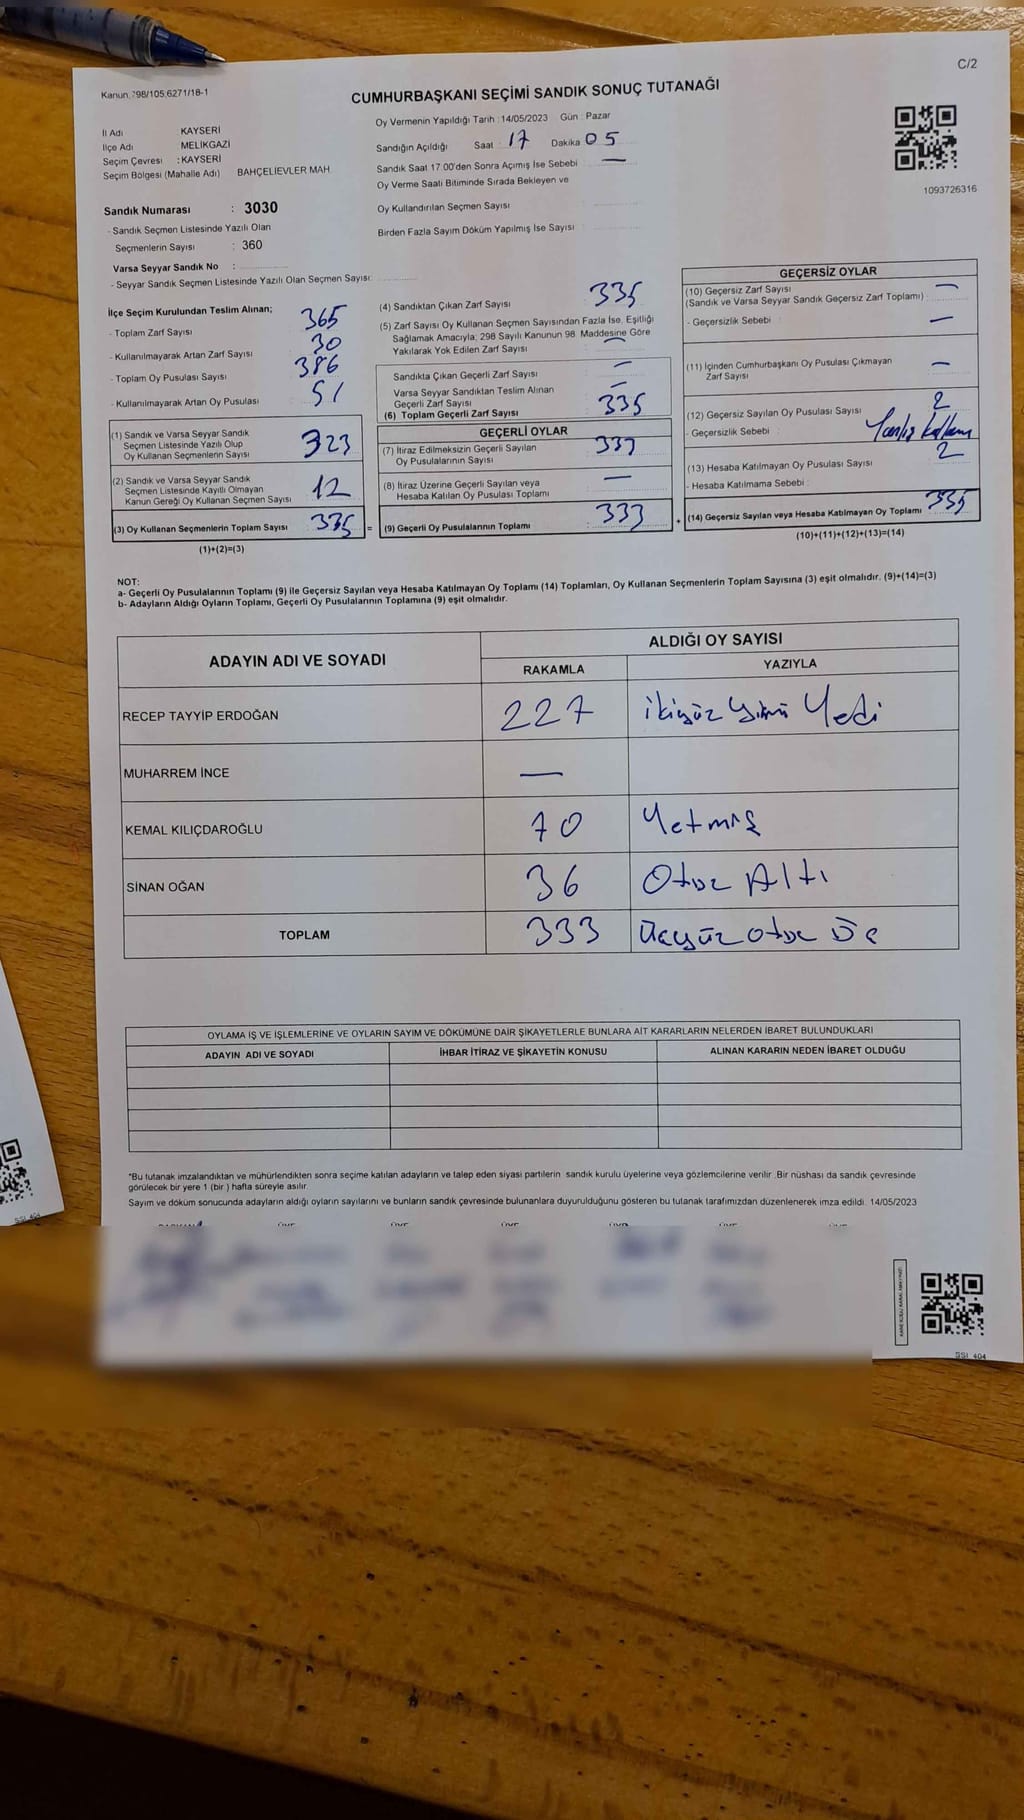 C/2
Kanun. 298/105.6271/18-1
CUMHURBAŞKANI SEÇİMİ SANDIK SONUÇ TUTANAĞI
İl Adı KAYSERİ
İlçe Adı MELİKGAZİ
Seçim Çevresi : KAYSERİ
Seçim Bölgesi (Mahalle Adı) BAHÇELİEVLER MAH
Sandık Numarası : 3030
- Sandık Seçmen Listesinde Yazılı Olan
Seçmenlerin Sayısı : 360
Varsa Seyyar Sandık No :
- Seyyar Sandık Seçmen Listesinde Yazılı Olan Seçmen Sayısı:
Oy Vermenin Yapıldığı Tarih : 14/05/2023 Gün : Pazar
Sandığın Açıldığı Saat : 17 Dakika 05
Sandık Saat 17:00'den Sonra Açımış İse Sebebi —
Oy Verme Saati Bitiminde Sırada Bekleyen ve
Oy Kullandırılan Seçmen Sayısı
Birden Fazla Sayım Döküm Yapılmış İse Sayısı
1093726316
İlçe Seçim Kurulundan Teslim Alınan;
- Toplam Zarf Sayısı 365
- Kullanılmayarak Artan Zarf Sayısı 30
- Toplam Oy Pusulası Sayısı 386
- Kullanılmayarak Artan Oy Pusulası 51
(1) Sandık ve Varsa Seyyar Sandık
Seçmen Listesinde Yazılı Olup
Oy Kullanan Seçmenlerin Sayısı 323
(2) Sandık ve Varsa Seyyar Sandık
Seçmen Listesinde Kayıtlı Olmayan
Kanun Gereği Oy Kullanan Seçmen Sayısı 12
(3) Oy Kullanan Seçmenlerin Toplam Sayısı 335 =
(1)+(2)=(3)
(4) Sandıktan Çıkan Zarf Sayısı 335
(5) Zarf Sayısı Oy Kullanan Seçmen Sayısından Fazla İse, Eşitliği
Sağlamak Amacıyla; 298 Sayılı Kanunun 98. Maddesine Göre
Yakılarak Yok Edilen Zarf Sayısı —
Sandıkta Çıkan Geçerli Zarf Sayısı —
Varsa Seyyar Sandıktan Teslim Alınan
Geçerli Zarf Sayısı —
(6) Toplam Geçerli Zarf Sayısı 335
GEÇERLİ OYLAR
(7) İtiraz Edilmeksizin Geçerli Sayılan
Oy Pusulalarının Sayısı 333
(8) İtiraz Üzerine Geçerli Sayılan veya
Hesaba Katılan Oy Pusulası Toplamı —
(9) Geçerli Oy Pusulalarının Toplamı 333 +
GEÇERSİZ OYLAR
(10) Geçersiz Zarf Sayısı —
(Sandık ve Varsa Seyyar Sandık Geçersiz Zarf Toplamı)
- Geçersizlik Sebebi : —
(11) İçinden Cumhurbaşkanı Oy Pusulası Çıkmayan
Zarf Sayısı —
(12) Geçersiz Sayılan Oy Pusulası Sayısı 2
- Geçersizlik Sebebi :
(13) Hesaba Katılmayan Oy Pusulası Sayısı 2
- Hesaba Katılmama Sebebi :
(14) Geçersiz Sayılan veya Hesaba Katılmayan Oy Toplamı 335
(10)+(11)+(12)+(13)=(14)
NOT:
a- Geçerli Oy Pusulalarının Toplamı (9) ile Geçersiz Sayılan veya Hesaba Katılmayan Oy Toplamı (14) Toplamları, Oy Kullanan Seçmenlerin Toplam Sayısına (3) eşit olmalıdır. (9)+(14)=(3)
b- Adayların Aldığı Oyların Toplamı, Geçerli Oy Pusulalarının Toplamına (9) eşit olmalıdır.
ADAYIN ADI VE SOYADI
ALDIĞI OY SAYISI
RAKAMLA YAZIYLA
RECEP TAYYİP ERDOĞAN 227 ikiyüz yirmi Yedi
MUHARREM İNCE —
KEMAL KILIÇDAROĞLU 70 Yetmiş
SİNAN OĞAN 36 Otuz Altı
TOPLAM 333 Üçyüz otuz Üç
OYLAMA İŞ VE İŞLEMLERİNE VE OYLARIN SAYIM VE DÖKÜMÜNE DAİR ŞİKAYETLERLE BUNLARA AİT KARARLARIN NELERDEN İBARET BULUNDUKLARI
ADAYIN ADI VE SOYADI İHBAR İTİRAZ VE ŞİKAYETİN KONUSU ALINAN KARARIN NEDEN İBARET OLDUĞU
*Bu tutanak imzalandıktan ve mühürlendikten sonra seçime katılan adayların ve talep eden siyasi partilerin sandık kurulu üyelerine veya gözlemcilerine verilir. Bir nüshası da sandık çevresinde
görülecek bir yere 1 (bir ) hafta süreyle asılır.
Sayım ve döküm sonucunda adayların aldığı oyların sayılarını ve bunların sandık çevresinde bulunanlara duyurulduğunu gösteren bu tutanak tarafımızdan düzenlenerek imza edildi. 14/05/2023
SSI 404
SSI 404